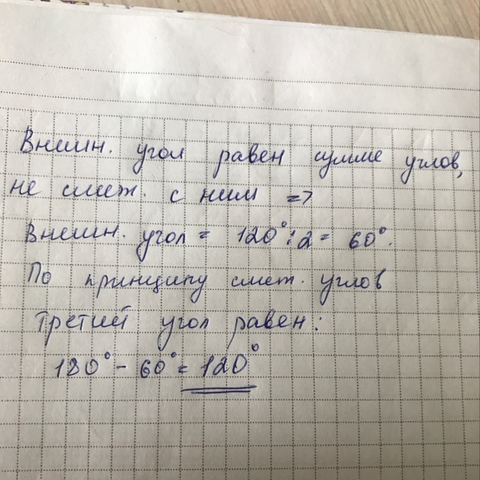 Внешн. угол равен сумме углов,
не смеж. с ним =>
Внешн. угол = 120°:2 = 60°.
По принципу смеж. углов
третий угол равен:
180° - 60° = 120°